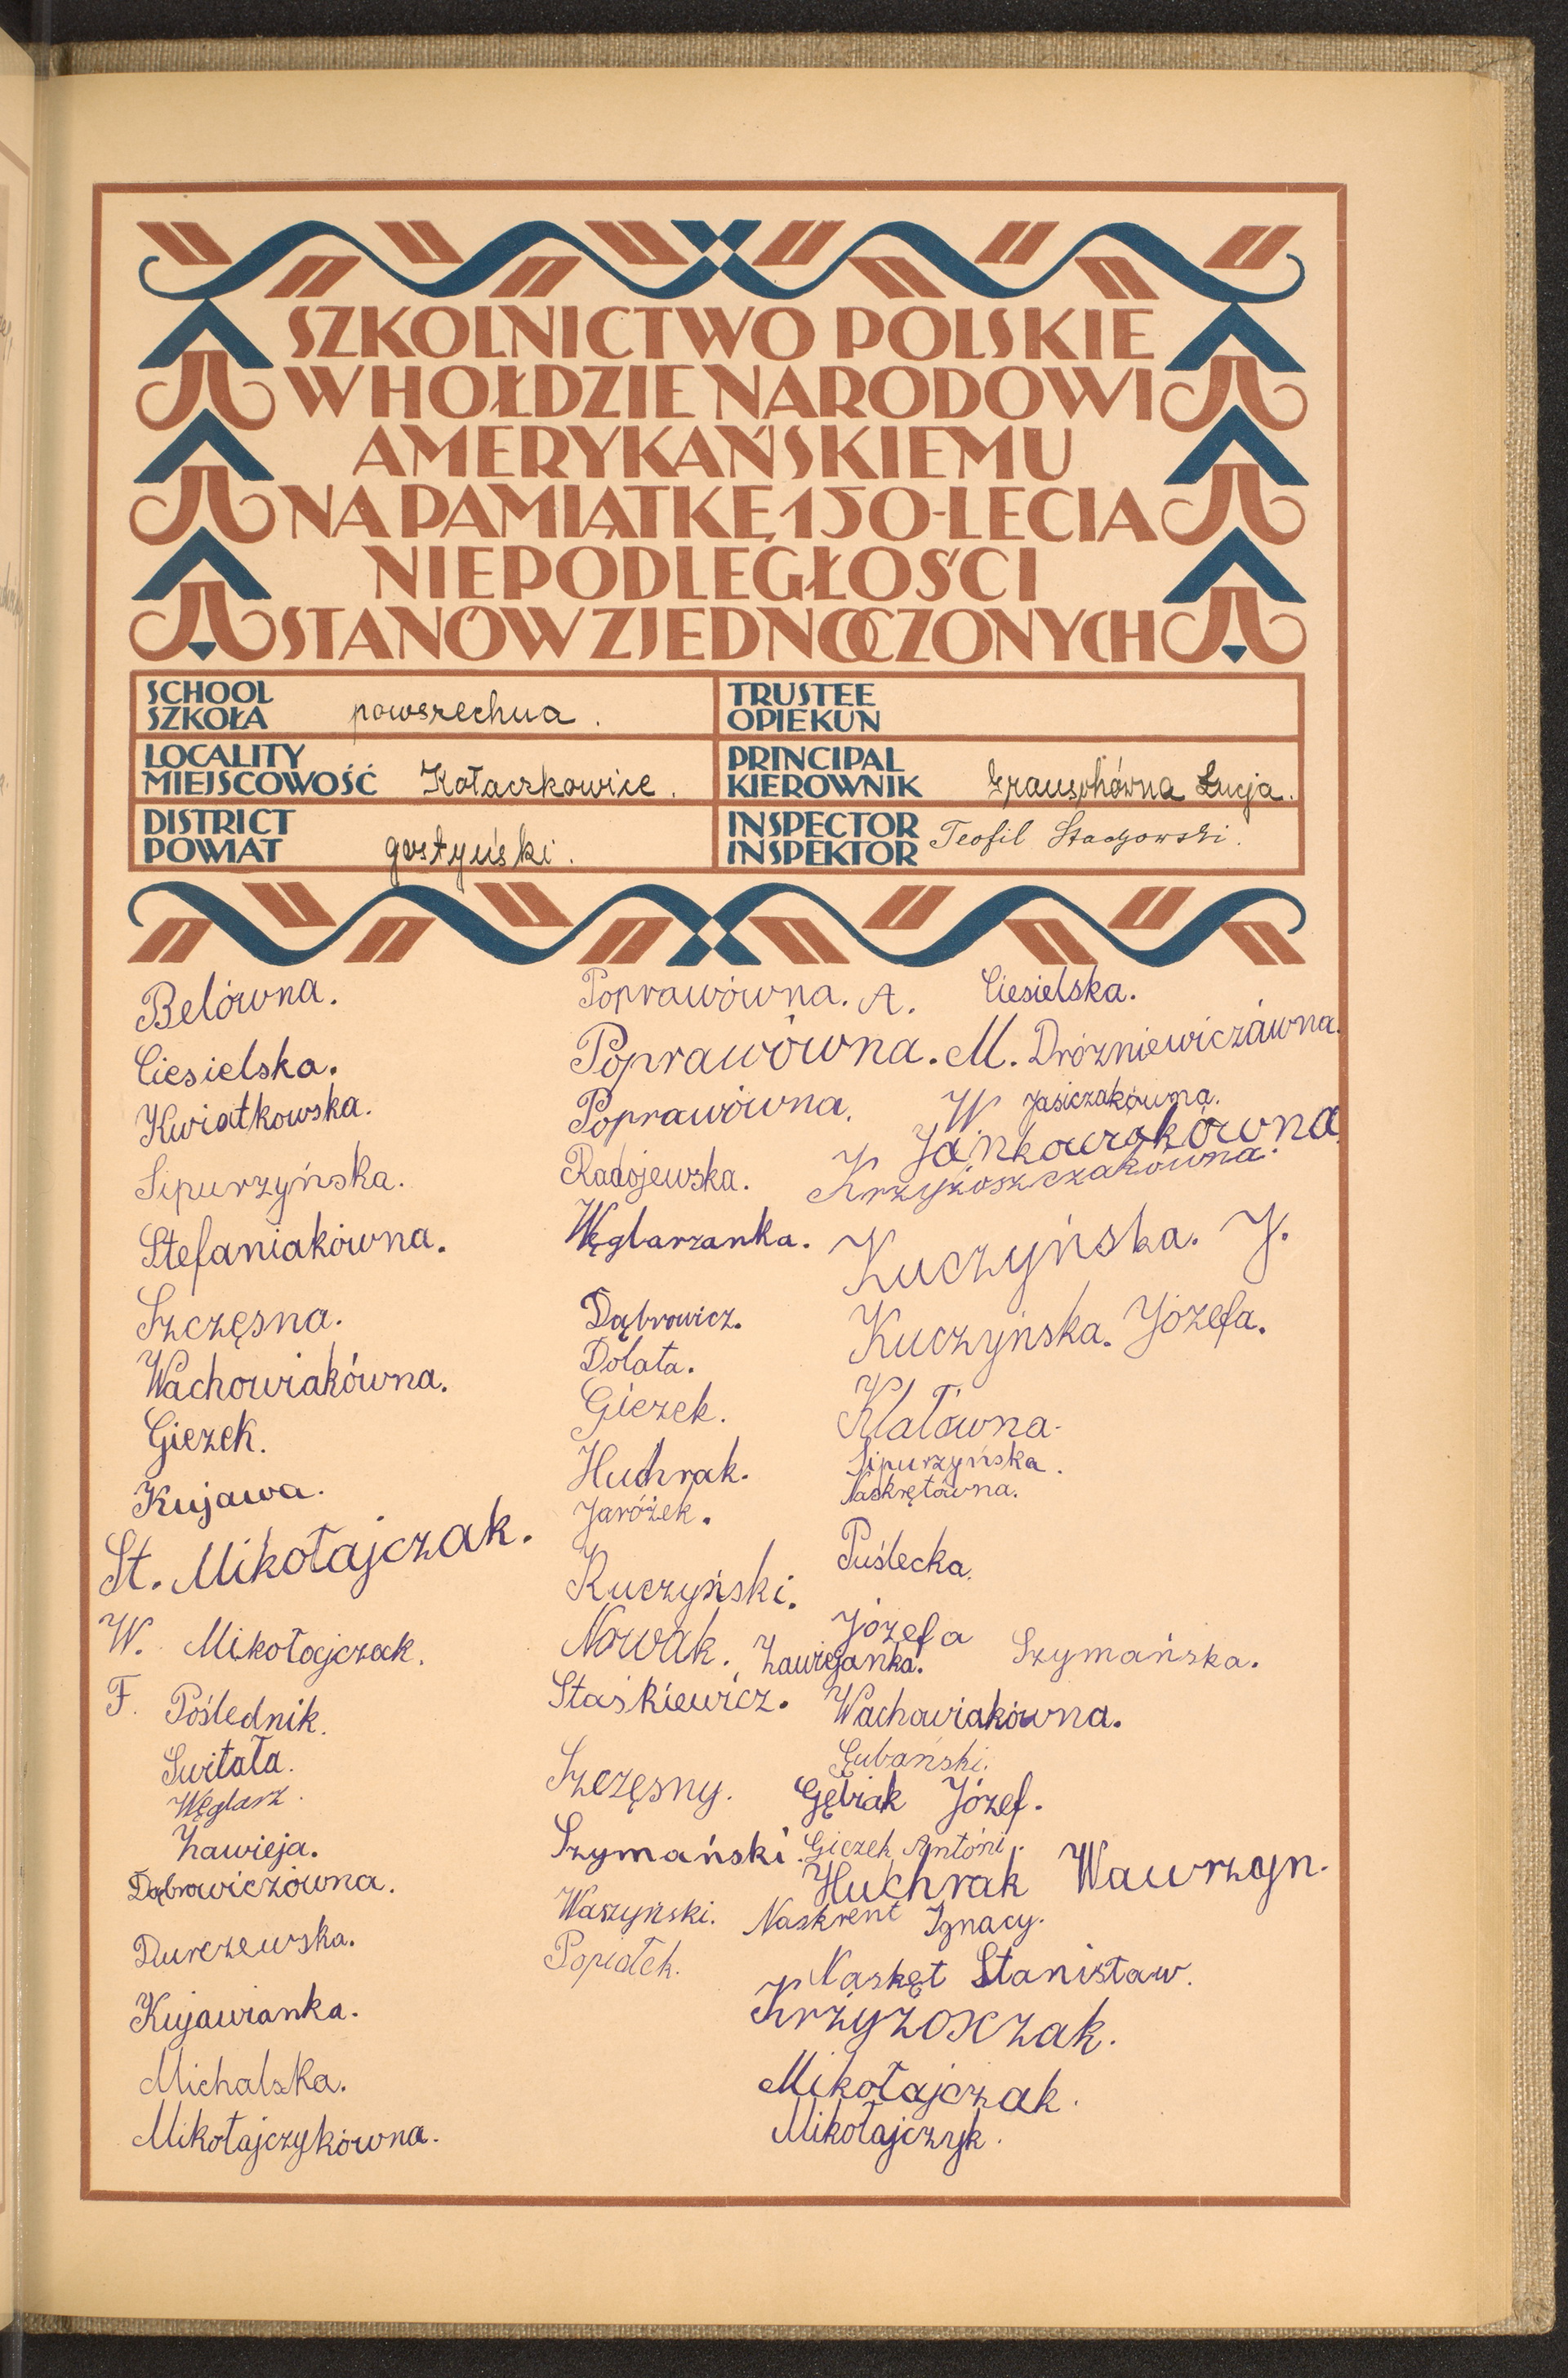 SZKOLNICTWO POLSKIE
W HOŁDZIE NARODOWI
AMERYKAŃSKIEMU
NA PAMIĄTKĘ 150-LECIA
NIEPODLEGŁOŚCI
STANÓW ZJEDNOCZONYCH
SCHOOL
SZKOŁA powszechna.
TRUSTEE
OPIEKUN
LOCALITY
MIEJSCOWOŚĆ Kołaczkowice.
PRINCIPAL
KIEROWNIK Łucja.
DISTRICT
POWIAT gostyński.
INSPECTOR
INSPEKTOR Teofil
Belówna.
Ciesielska.
Kwiatkowska.
Sipurzyńska.
Stefaniakówna.
Szczęsna.
Wachowiakówna.
Giezek.
Kujawa.
St. Mikołajczak.
W. Mikołajczak.
F. Poślednik.
Świtała.
Węglarz.
Zawieja.
Dąbrowiczówna.
Durczewska.
Kujawianka.
Michalska.
Mikołajczykówna.
Poprawówna. A.
Poprawówna. M.
Poprawówna. W
Radojewska.
Węglarzanka.
Dąbrowicz.
Dolata.
Giezek.
Huchrak.
Jarożek.
Kuczyński.
Nowak.
Staśkiewicz.
Szczęsny.
Szymański.
Waszyński.
Popiołek.
Ciesielska.
Dróżniewiczówna.
Jasiczakówna.
Jankowiakówna
Krzyżoszczakówna.
Kuczyńska. J.
Kuczyńska. Józefa.
Klatówna.
Sipurzyńska.
Naskrętówna.
Puślecka.
Józefa Szymańska.
Zawiejanka.
Wachowiakówna.
Gubański.
Gębiak Józef.
Giezek Antóni.
Huchrak Wawrzyn.
Naskrent Ignacy.
Naskęt Stanisław.
Krzyżosczak.
Mikołajczak.
Mikołajczyk.